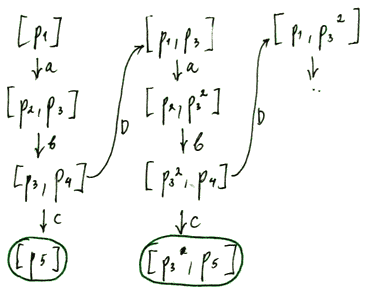 [p₁]
a
[p₂, p₃]
b
[p₃, p₄]
c
[p₅]
D
[p₁, p₃]
a
[p₂, p₃²]
b
[p₃², p₄]
c
[p₃², p₅]
D
[p₁, p₃²]
..